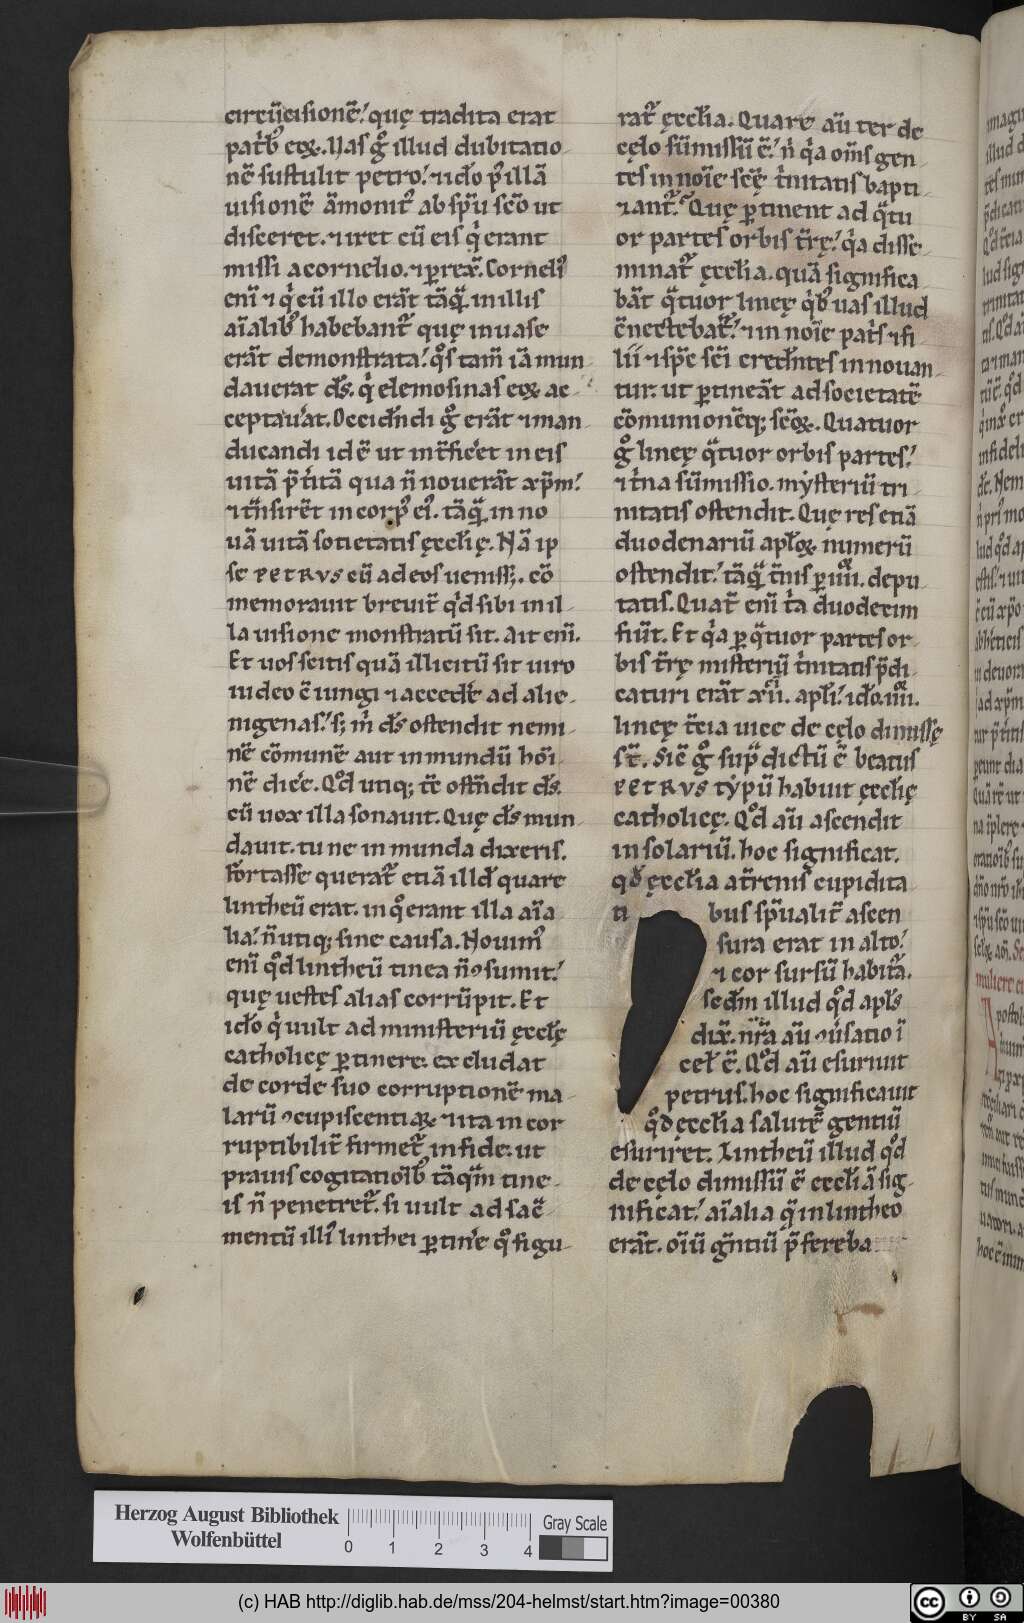 circūcisionē! quę tradita erat
patͥbꝰ eoꝝ. Has gͦ illud dubitatio-
nē sustulit petro! ⁊ idō pꝰ illā
uisionē āmonitꝰ ab spū scō ut
disceret. ⁊ iret cū eis qͥ erant
missi a cornelio. ⁊ ꝑrexͭ. Corneliꝰ
enī ⁊ qͥ cū illo erāt tāqͣ in illis
aīalibꝰ habebantᷣ quę in uase
erāt demonstrata! qͦs tam̄ iā mun-
dauerat ds̄. qͥ elemosinas eoꝝ ac-
ceptauͣat. Occidn̄di gͦ erāt ⁊ man-
ducandi id ē ut int̄ficͥet in eis
uitā p̄tͥitā qua n̄ nouerāt xp̄m!
⁊ tn̄sirēt in corpꝰ eiꝰ. tāqͣ in no
uā uitā societatis ęccl̄ię. Nā ip
se PETRVS cū ad eos uenissꝫ. cō
memorauit breuit̄ qͥd sibi in il-
la uisione monstratū sit. Ait enī.
Et uos scitis quā illicitū sit uiro
iudeo ē iungi ⁊ accedē ad alie-
nigenas! sꝫ mͥ ds̄ ostendit nemi-
nē cōmunē aut inmundū hōi-
nē dicͤe. Qͦd utiqꝫ tc̄ ostn̄dit ds̄.
cū uox illa sonauit. Quę ds̄ mun-
dauit. tu ne inmunda dixeris.
Fortasse queratᷣ etiā illd̄ quare
lintheū erat. in qͦ erant illa aīa
lia! n̄ utiqꝫ sine causa. Nouimꝰ
enī qͦd lintheū tinea n̄ ꝯsumit!
quę uestes alias corrūpit. Et
idō qͥ uult ad ministeriū ęccl̄ę
catholicę ꝑtinere. excludat
de corde suo corruptionē ma-
larū ꝯcupiscentiaꝝ ⁊ ita incor
ruptibilit̄ firmetᷣ in fide. ut
prauis cogitatioībꝰ tāqͣm tine-
is n̄ penetretᷣ. si uult ad sac̄-
mentū illiꝰ linthei ꝑtinͤe qͦ figu-
ratᷣ ęccl̄ia. Quare aū ter de
cęlo sūmissū ē! nͥ qͥa om̄s gen-
tes in noīe scę̄ tͥnitatis bapti-
⁊antᷣ. Quę ꝑtinent ad qͣtu
or partes orbis t̄rę! qͥa disse-
minatᷣ ęccl̄ia. quā significa-
bāt qͣtuor lineę qͥbꝰ uas illud
ēnectebatᷣ! ⁊ in noīe patͥs ⁊ fi-
lii ⁊ sp̄c sc̄i credn̄tes innouan-
tur. ut ꝑtineāt ad societatē
cōmunionēqꝫ sc̄oꝝ. Quatuor
gͦ lineę qͣtuor orbis partes!
⁊ tͥna sūmissio. mẏsteriū tri-
nitatis ostendit. Quę res etiā
duodenariū apl̄oꝝ numerū
ostendit! tāqͣ tn̄is ꝑ iiii. depu-
tatis. Quat̄ enī tͥa duodecim
fiūt. Et qͥa ꝑ qͣtuor partes or-
bis t̄rę misteriū tͥnitatis p̄di-
caturi erāt xii. apl̄i! idō iiii.
lineę t̄cia uice de cęlo dimissę
st̄. Sic̄ gͦ supͣ dictū ē beatus
PETRVS tẏpū habuit ęccl̄ię
catholicę. Qͦd aū ascendit
in solariū. hoc significat.
qd̄ ęccl̄ia at̄renis cupidita
ti bus sp̄ualit̄ ascen
sura erat in alto!
⁊ cor sursū habitͣa.
sedm̄ illud qͦd apl̄s
dix̄. nr̄a aū ꝯuͥsatio ī
cel̄ ē. Qͦd aū esuriuit
petrus. hoc significauit
qͦd ęccl̄ia salutē gentiū
esuriret. Lintheū illud qͦd
de cęlo dimissū ē eccl̄iā sig-
nificat! aīalia qͣ in lintheo
erāt. oīū gn̄tiū p̄ferēba
Herzog August Bibliothek
Wolfenbüttel
0 1 2 3 4
Gray Scale
(c) HAB http://diglib.hab.de/mss/204-helmst/start.htm?image=00380
cc BY SA